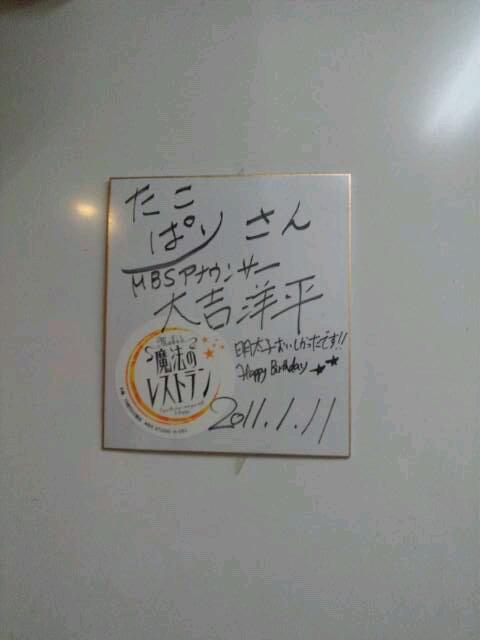 たこ
ぱりさん
MBSアナウンサー
大吉洋平
魔法の
レストラン
明太子おいしかったです!!
Happy Birthday
2011.1.11